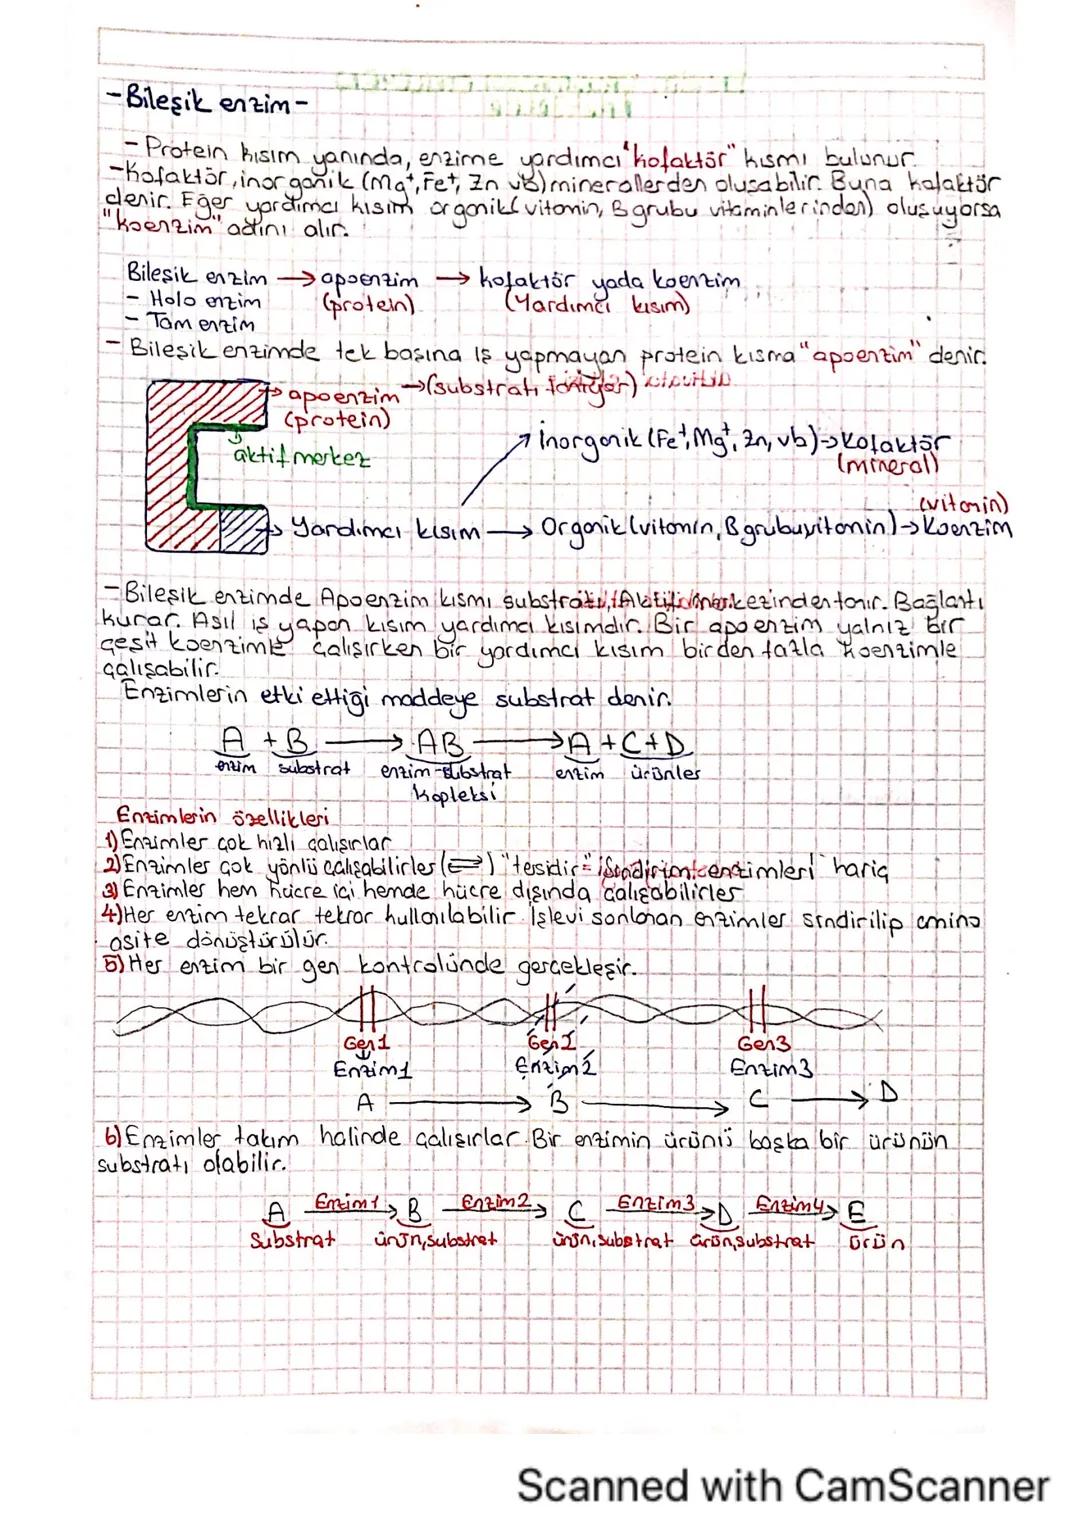 - Bileşik enzim -
- Protein kısım yanında, enzime yardımcı "kofaktör" kısmı bulunur.
- Kofaktör, inorganik (Mg⁺, Fe⁺, Zn vb) minerallerden oluşabilir. Buna kofaktör
denir. Eğer yardımcı kısım organik (vitamin, B grubu vitaminlerinden) oluşuyorsa
"koenzim" adını alır.
Bileşik enzim → apoenzim → kofaktör yada koenzim
- Holo enzim (protein) (Yardımcı kısım)
- Tam enzim
- Bileşik enzimde tek başına iş yapmayan protein kısma "apoenzim" denir.
→ apoenzim → (substratı tanıyor)
(protein)
İnorganik (Fe⁺, Mg⁺, Zn, vb) → Kofaktör
aktif merkez (mineral)
(vitamin)
→ Yardımcı kısım → Organik (vitamin, B grubu vitamin) → Koenzim
- Bileşik enzimde Apoenzim kısmı substratı, Aktif merkezinden tanır. Bağlantı
kurar. Asıl iş yapan kısım yardımcı kısımdır. Bir apoenzim yalnız bir
çeşit koenzimle çalışırken bir yardımcı kısım birden fazla koenzimle
çalışabilir.
Enzimlerin etki ettiği maddeye substrat denir.
A + B → AB → A + C + D
enzim substrat enzim-substrat enzim ürünler
kopleksi
Enzimlerin özellikleri
1) Enzimler çok hızlı çalışırlar
2) Enzimler çok yönlü çalışabilirler (⇌) "tersidir" Sindirim enzimleri hariç
3) Enzimler hem hücre içi hemde hücre dışında çalışabilirler
4) Her enzim tekrar tekrar kullanılabilir. İşlevi sonlanan enzimler sindirilip amino
asite dönüştürülür.
5) Her enzim bir gen kontrolünde gerçekleşir.
Gen1 Gen2 Gen3
Enzim1 Enzim2 Enzim3
A → B → C → D
6) Enzimler takım halinde çalışırlar. Bir enzimin ürünü başka bir ürünün
substratı olabilir.
A Enzim1 → B Enzim2 → C Enzim3 → D Enzim4 → E
Substrat ürün, substrat ürün, substrat ürün, substrat ürün
Scanned with CamScanner